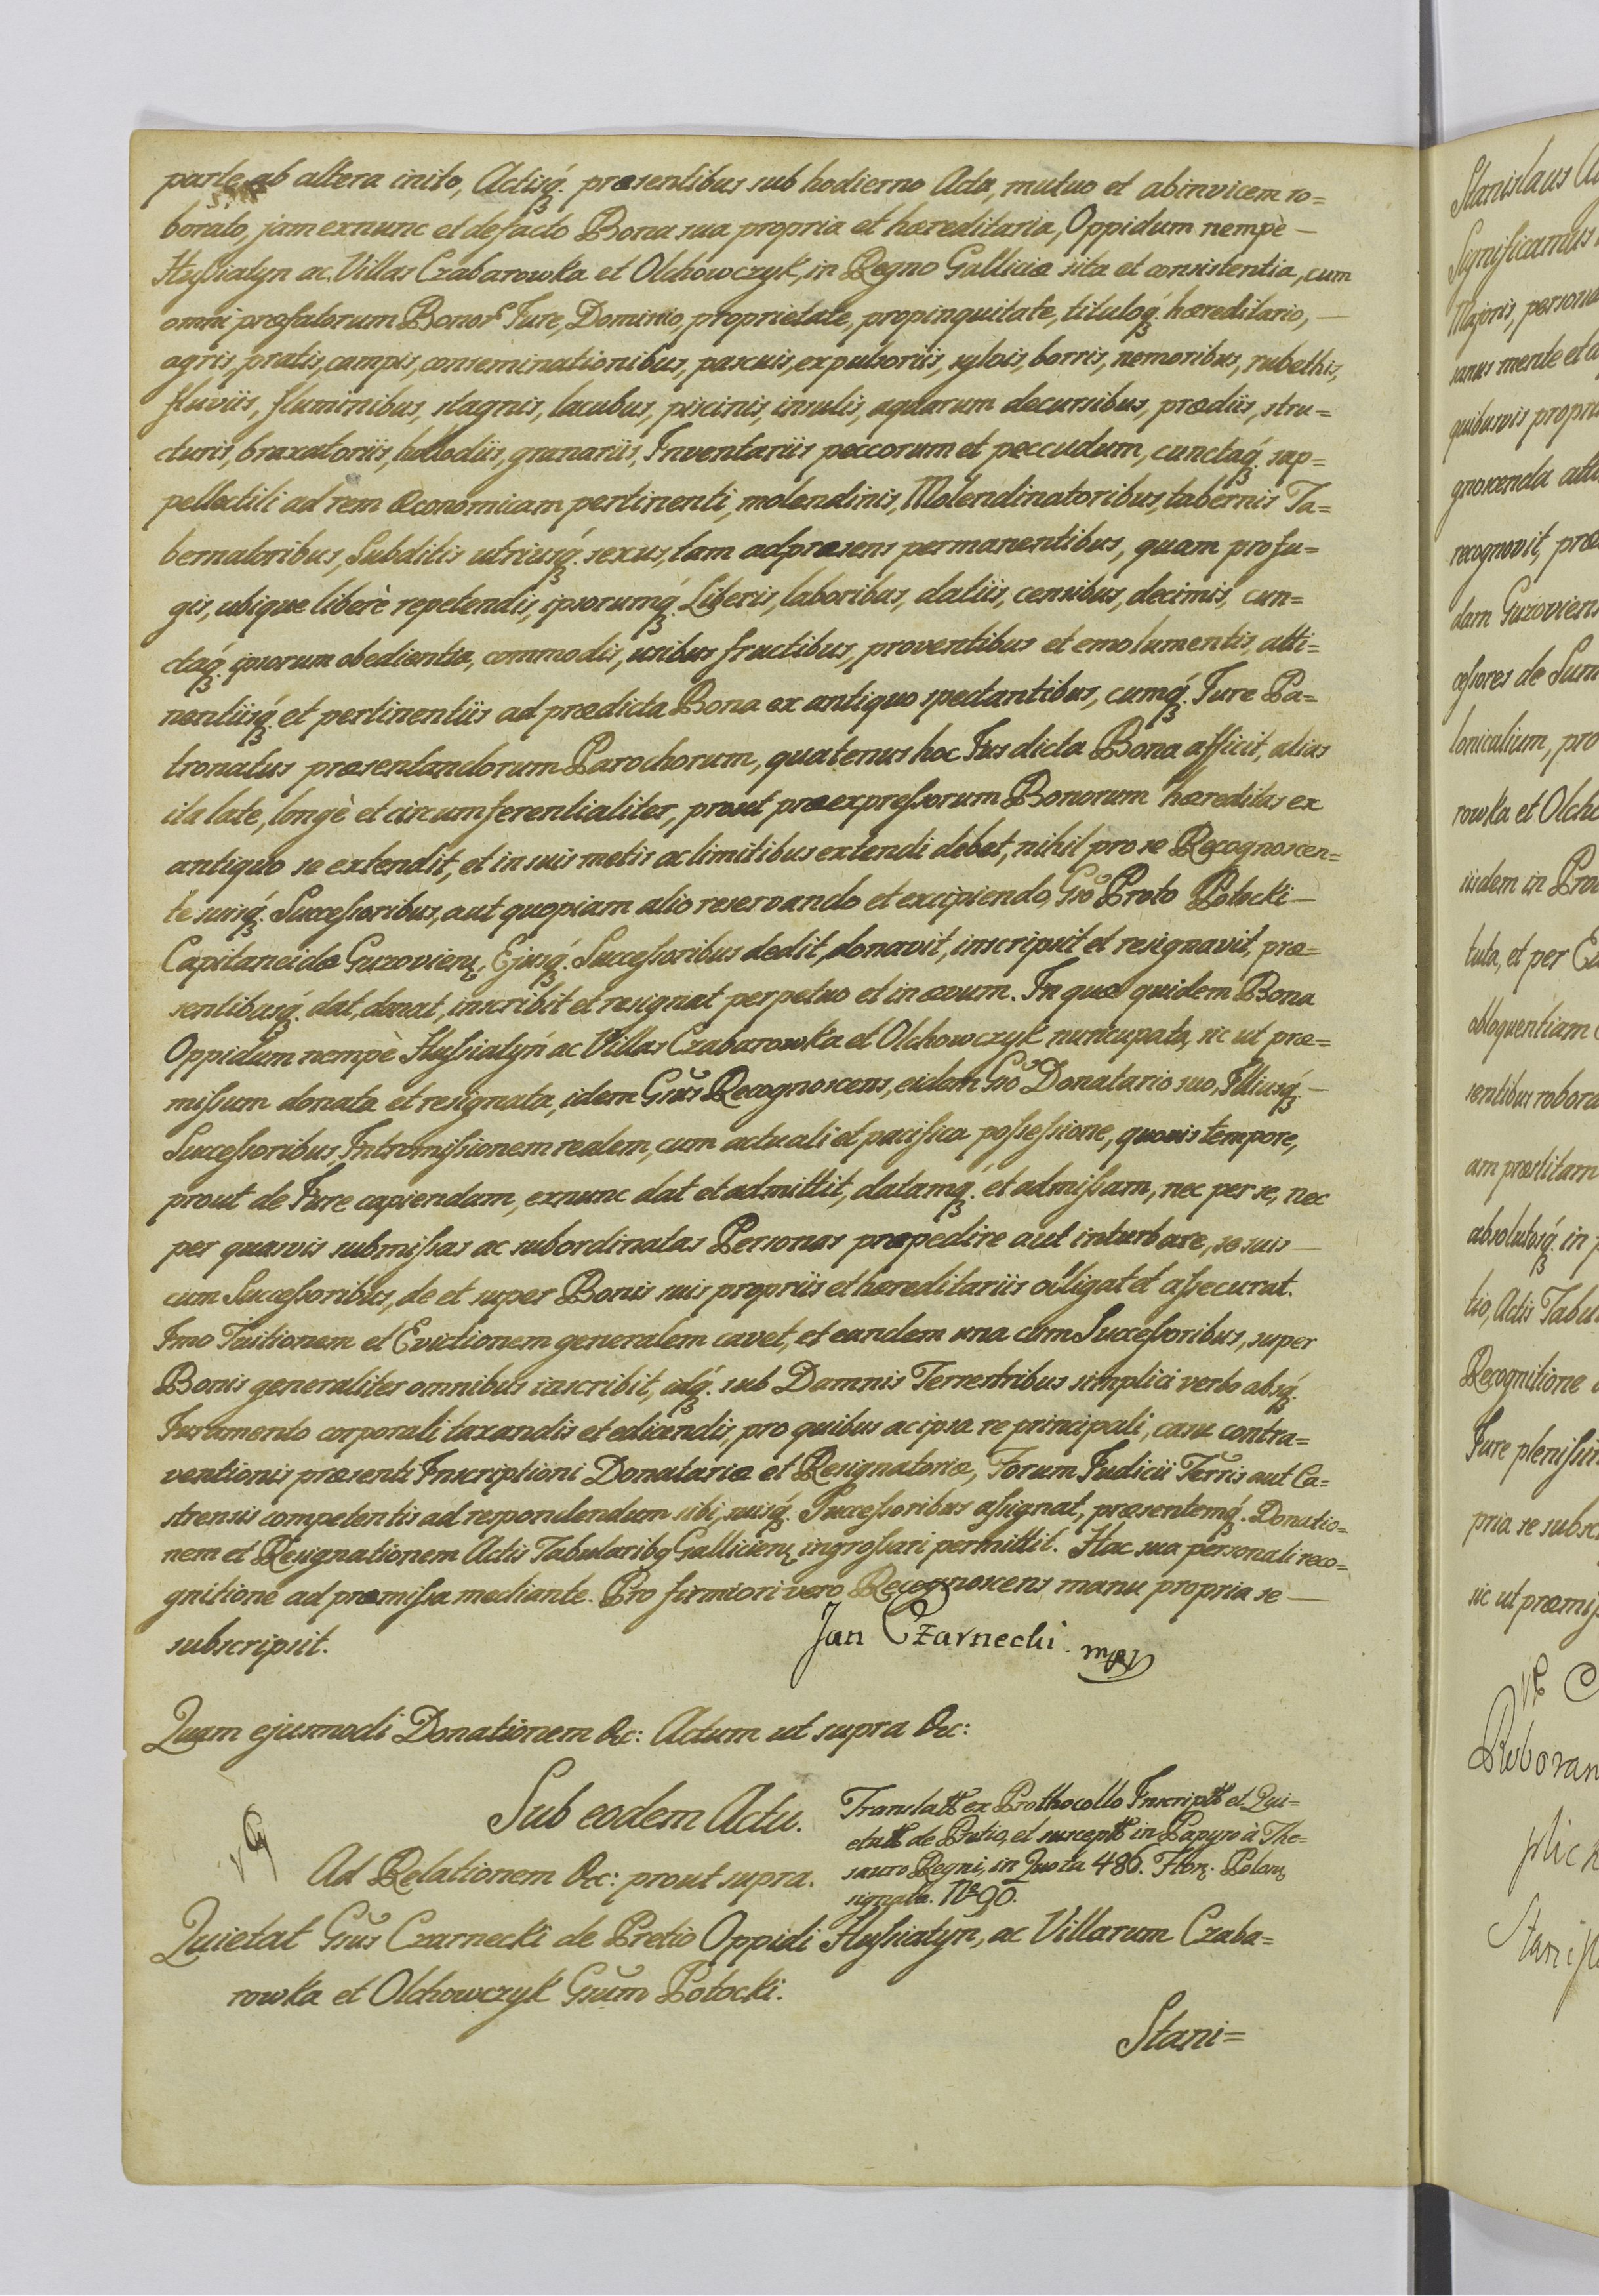 parte ab altera inito, Actisq́ꝫ. præsentibus sub hodierno Actu, mutuo et abinvicem ro=
borato, jam exnunc et defacto Bona sua propria et hæreditaria, Oppidum nempè —
Husiatyn ac Villas Czabarowka et Olchowczyk, in Regno Galliciæ sita et consistentia, cum
omni præfatorum Bonor̃ Jure, Dominio, proprietate, propinquitate, tituloq́ꝫ. hæreditario, —
agris, pratis, campis, conseminationibus, pascuis, expulsoriis, sylvis, borris, nemoribus, rubethis,
fluviis, fluminibus, stagnis, lacubus, piscinis, insulis, aquarum decursibus, prædiis, stru=
cturis, braxatoriis, hallodiis, granariis, Inventariis peccorum et peccudum, cunctaq́ꝫ. sup=
pellectili ad rem œconomicam pertinenti, molendinis, Molendinatoribus, tabernis Ta=
bernatoribus, Subditis utriusq́ꝫ. sexus, tam adpræsens permanentibus, quam profu=
gis, ubique liberè repetendis, ipsorumq́ꝫ. Liberis, laboribus, datiis, censibus, decimis, cun=
ctaq́ꝫ. ipsorum obedientia, commodis, usibus fructibus, proventibus et emolumentis, atti=
nentiisq́ꝫ et pertinentiis ad prædicta Bona ex antiquo spectantibus, cumq́ꝫ. Jure Pa=
tronatus præsentandorum Parochorum, quatenus hoc Jus dicta Bona afficit, alias
ita late, longè et circumferentialiter, prout præexpressorum Bonorum hæreditas ex
antiquo se extendit, et in suis metis ac limitibus extendi debet, nihil pro se Recognoscen=
te suisq́ꝫ. Successoribus, aut quopiam alio reservando et excipiendo, Gso Proto Potocki —
Capitaneidæ Guzovienꝫ, Ejusq́ꝫ. Successoribus dedit, donavit, inscripsit et resignavit, præ=
sentibusq́ꝫ. dat, donat, inscribit et resignat perpetuo et in ævum. In quæ quidem Bona
Oppidum nempè Husiatyń ac Villas Czabarowka et Olchowczyk nuncupata, sic ut præ=
missum donata et resignata, idem Gsus Recognoscens, eidem Gso Donatario suo, Illiusq́ꝫ. —
Successoribus, Intromissionem realem, cum actuali et pacifica possessione, quovis tempore,
prout de Jure capiendam, exnunc dat et admittit, datamq́ꝫ. et admissam, nec per se, nec
per quasvis submissas ac subordinatas Personas præpedire aut inturbare, se suis —
cum Successoribus, de et super Bonis suis propriis et hæreditariis obligat et assecurat.
Imo Tuitionem et Evictionem generalem cavet, et eandem una cum Successoribus, super
Bonis generaliter omnibus inscribit, idq́ꝫ. sub Damnis Terrestribus simplici verbo absq́ꝫ.
Juramento corporali taxandis et edicendis, pro quibus ac ipsa re principali, casu contra=
ventionis præsenti Inscriptioni Donatariæ et Resignatoriæ, Forum Judicii Terris aut Ca=
strensis competentis ad respondendum sibi, suisq́ꝫ. Successoribus assignat, præsentemq́ꝫ. Donatio=
nem et Resignationem Actis Tabularibꝫ Gallicienꝫ ingrossari permittit. Hac sua personali reco=
gnitione ad præmissa mediante. Pro firmiori vero Recognoscens manu propria se —
subscripsit.
Jan Czarnecki mp
Quam ejusmodi Donationem &c: Actum ut supra &c:
Sub eodem Actu.
Translatt ex Prothocollo Inscriptt et Qui=
etatt de Pretio, et susceptt in Papyro à The=
sauro Regni, in Quota 486. Florꝫ. Polonꝫ
signata. No 90.
Ad Relationem &c: prout supra.
Quietat Gsus Czarnecki de Pretio Oppidi Husiatyn, ac Villarum Czaba=
rowka et Olchowczyk Gsum Potocki.
Stani=
Stanislaus
Significamus
Majoris, persona
sanus mente et
quibusvis propri
gnoscenda
recognovit, præ
dam Guzoviens
cessores de Sum
lonicalium, pro
rowka et Olcho
iisdem in Pro
tuta, et per
obloquentiam
sentibus robora
am præstitam
absolutosq́ꝫ. in
tio, Actis Tabu
Recognitione
Jure plenissi
pria se subsc
sic ut præmis
Roboran
plic
Stanisl